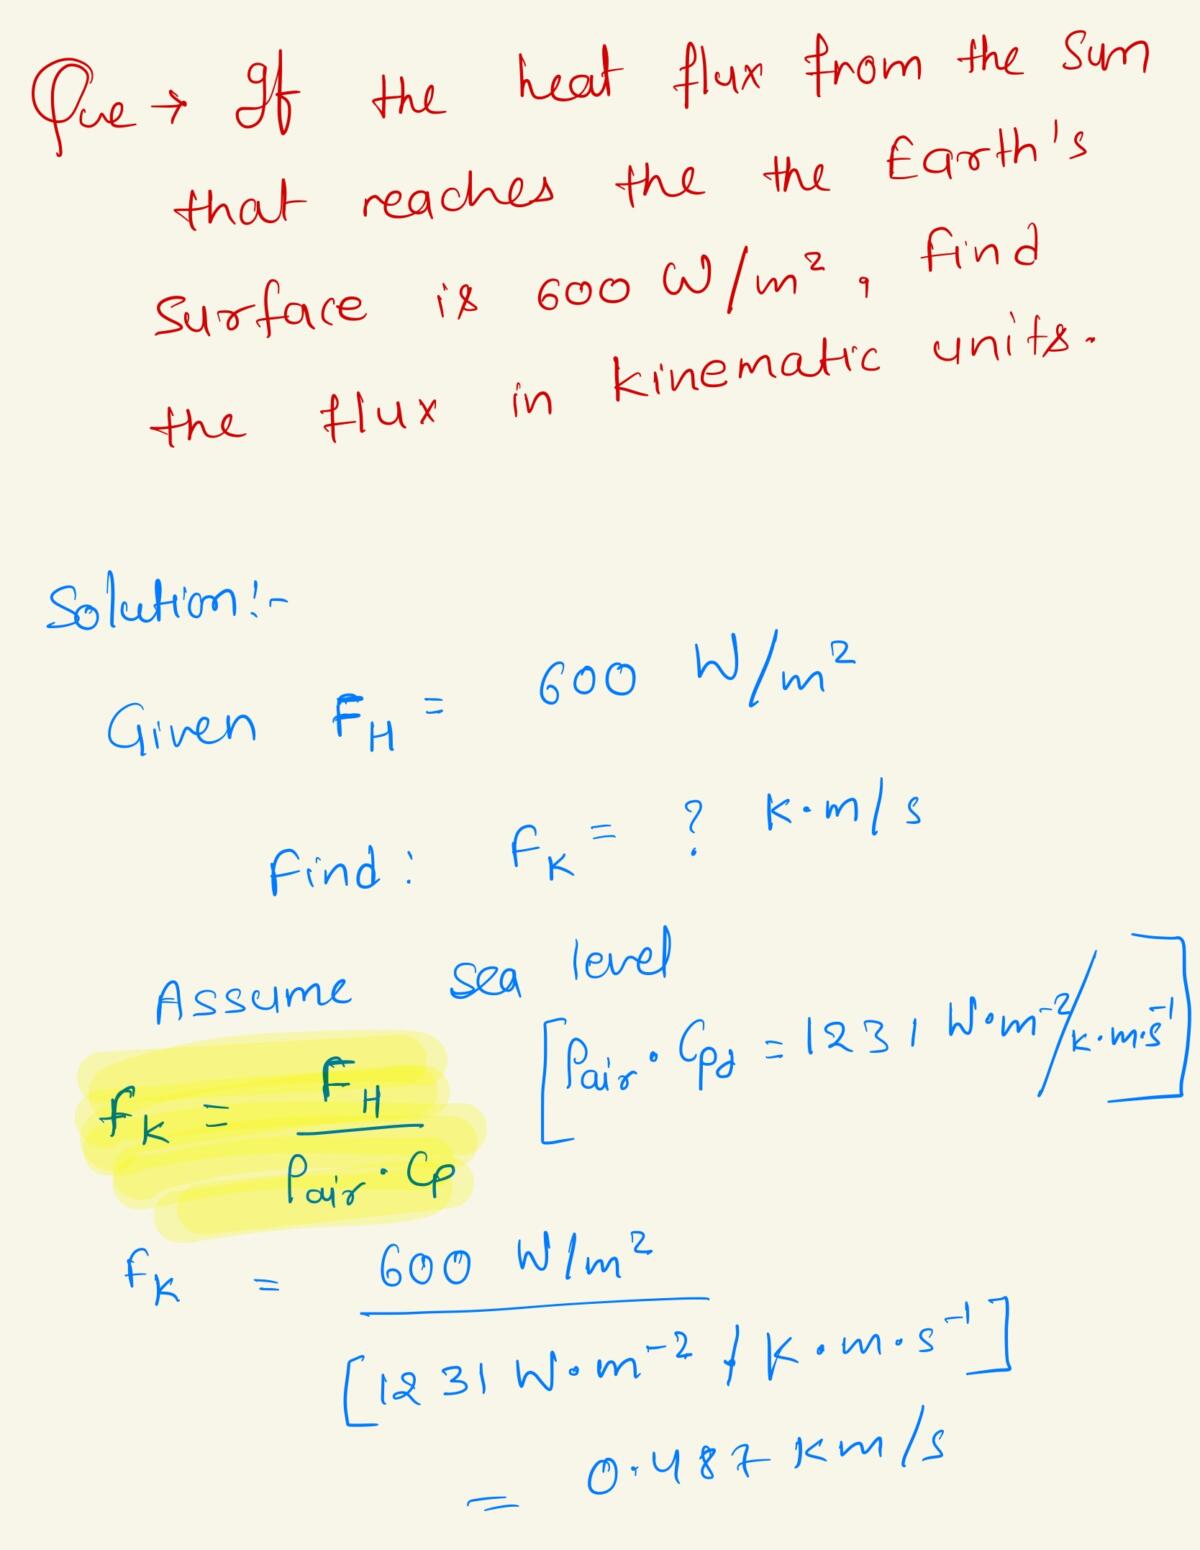 Que → If the heat flux from the Sun
that reaches the the Earth's
surface is 600 W/m², find
the flux in kinematic units.
Solution:-
Given F_H = 600 W/m²
Find: F_K = ? K·m/s
Assume sea level
[ρair · Cpd = 1231 W·m⁻²/K·m·s⁻¹]
F_K = F_H / ρair · Cp
F_K = 600 W/m² / [1231 W·m⁻² / K·m·s⁻¹]
= 0.487 Km/s